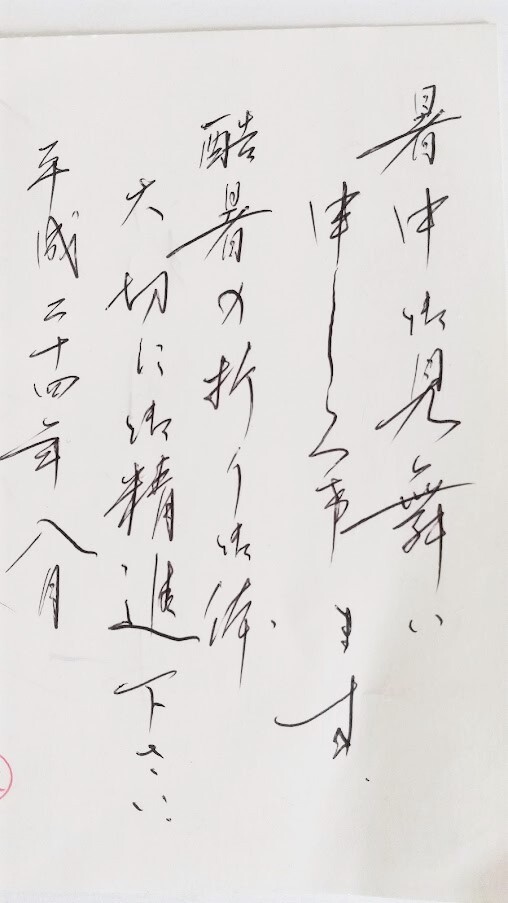 暑中御見舞い
申し上げます
酷暑の折り御体
大切に御精進下さい
平成二十四年八月